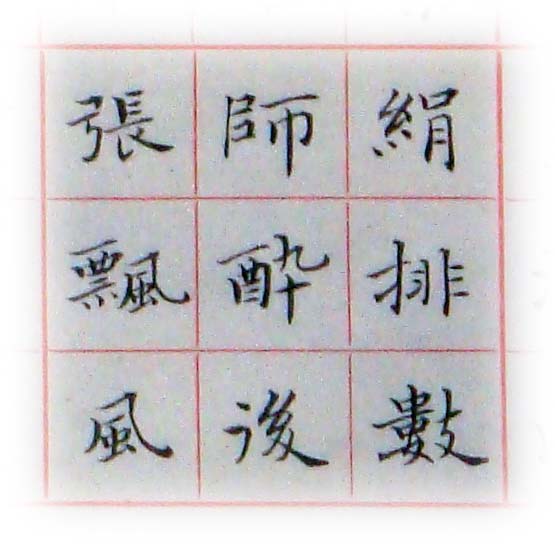 絹排數
師酔後
張飄風